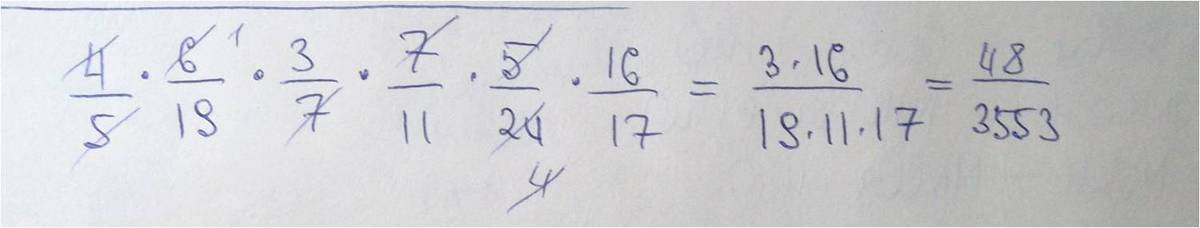 4/5 · 6/19 · 3/7 · 7/11 · 5/24 · 16/17 = 3·16/19·11·17 = 48/3553
1
4